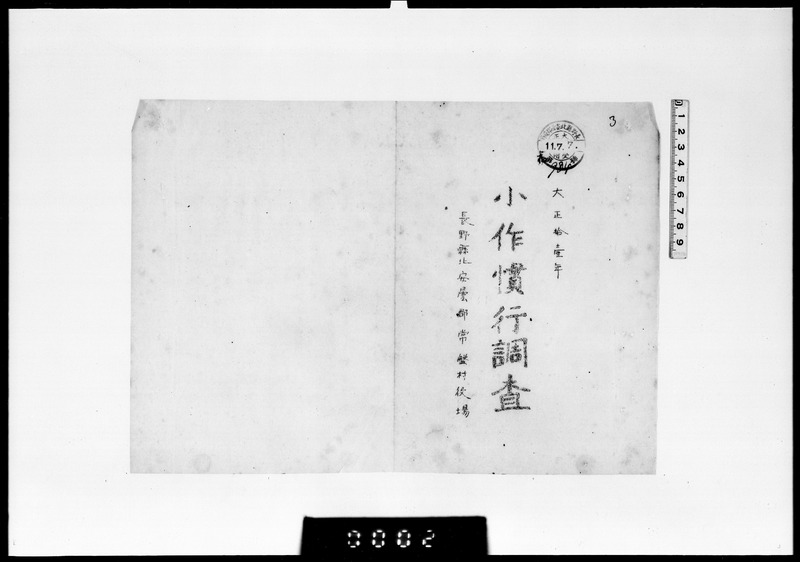 3
11.7.7
大正拾壹年
小作慣行調査
長野縣北安曇郡常盤村役場
1 2 3 4 5 6 7 8 9
0002